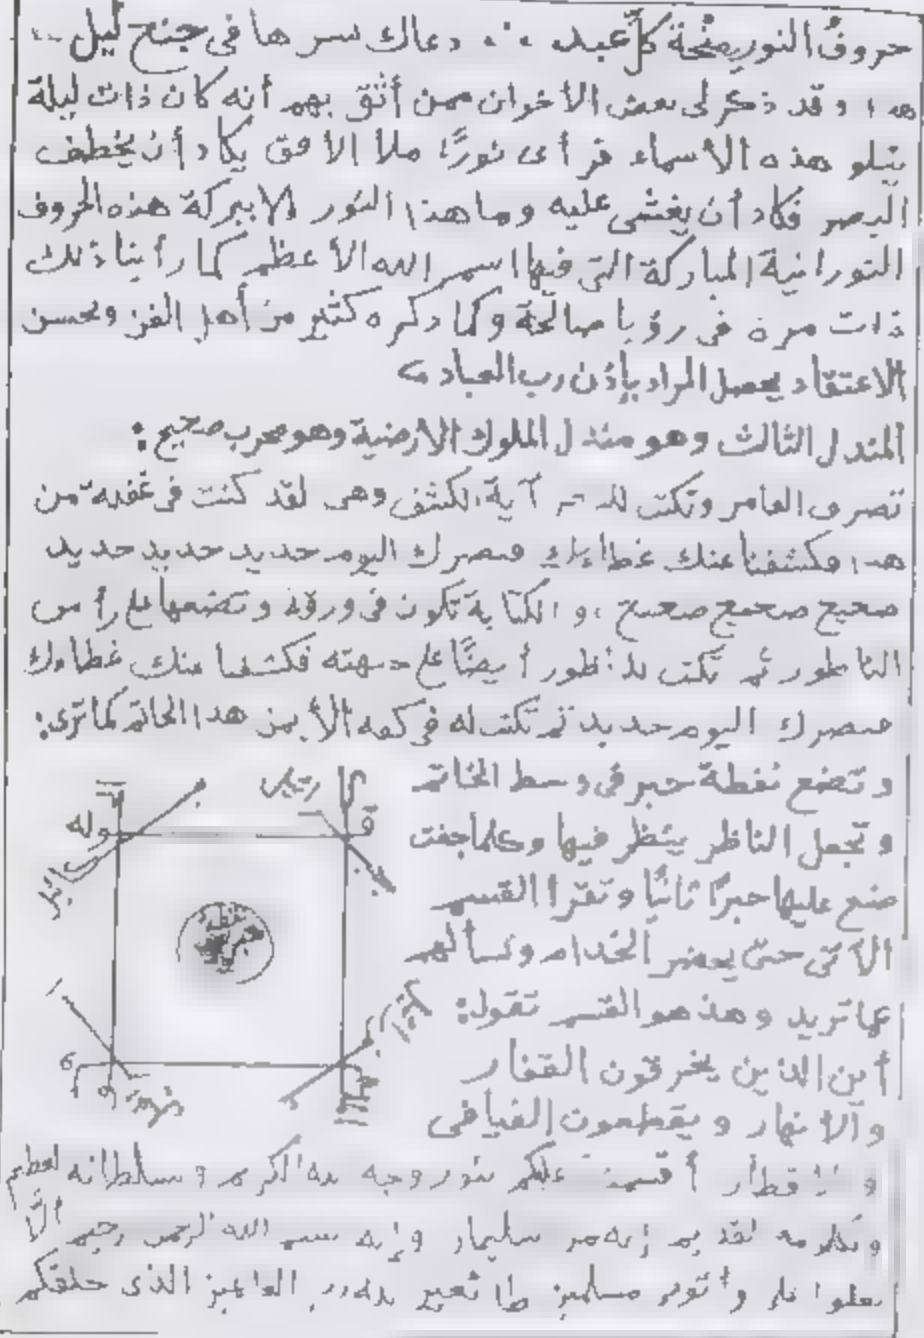 حروف النور بصفحة كل عبد ∴ دعاك بسرها في جنح ليل
هـ، وقد ذكر لي بعض الأخوان ممن أثق بهم أنه كان ذات ليلة
يتلو هذه الأسماء فرأى نورًا ملأ الأفق يكاد أن يخطف
البصر فكاد أن يغشى عليه وما هذا النور إلا ببركة هذه الحروف
النورانية المباركة التي فيها اسم الله الأعظم كما رأينا ذلك
ذات مرة في رؤيا صالحة وكما ذكره كثير من أهل الفن وبحسن
الاعتقاد يحصل المراد بإذن رب العباد
المندل الثالث وهو مندل الملوك الأرضية وهو مجرب صحيح :
تصرف العامر وتكتب آية الكشف وهي لقد كنت في غفلة من
هذا فكشفنا عنك غطاءك فبصرك اليوم حديد حديد حديد
صحيح صحيح صحيح، والكتابة تكون في ورقة وتضعها على رأس
الناظور ثم تكتب للناظور أيضًا على جبهته فكشفنا عنك غطاءك
فبصرك اليوم حديد ثم تكتب له في كفه الأيمن هذا الخاتم كما ترى:
وتضع نقطة حبر في وسط الخاتم
وتجعل الناظر ينظر فيها وكلما جفت
ضع عليها حبرًا ثانيًا وتقرأ القسم
الآتي حتى يحضر الخدام وتسألهم
عما تريد وهذا هو القسم تقول:
أين الذين يخرقون القفار
والأنهار ويقطعون الفيافي
والأقطار أقسمت عليكم بنور وجه الله الكريم وسلطانه العظيم
وبكلامه القديم إنه من سليمان وإنه بسم الله الرحمن الرحيم ألا
تعلوا علي وأتوني مسلمين طائعين لله رب العالمين الذي خلقكم
وله
نقطة
حبر